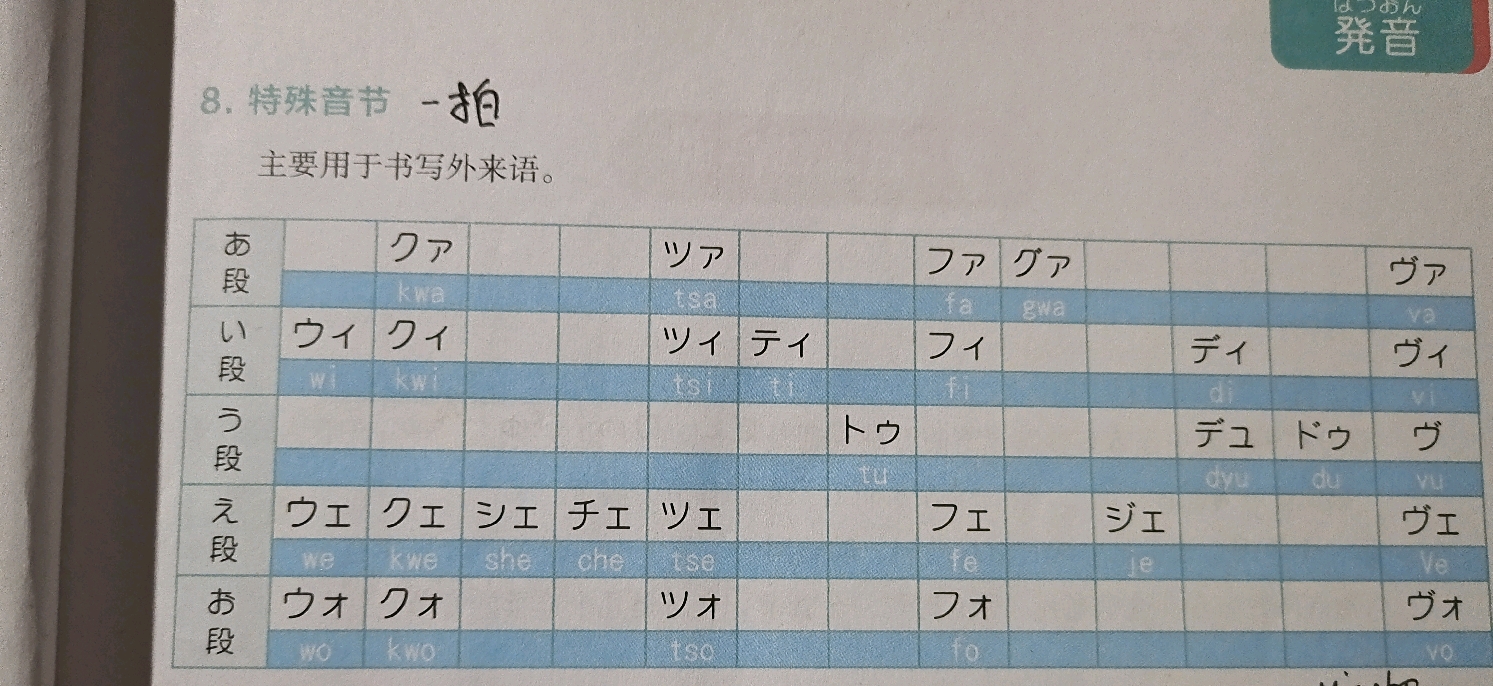 はつおん
発音
8. 特殊音节 一拍
主要用于书写外来语。
あ段 クァ ツァ ファ グァ ヴァ
kwa tsa fa gwa va
い段 ウィ クィ ツィ ティ フィ ディ ヴィ
wi kwi tsi ti fi di vi
う段 トゥ デュ ドゥ ヴ
tu dyu du vu
え段 ウェ クェ シェ チェ ツェ フェ ジェ ヴェ
we kwe she che tse fe je Ve
お段 ウォ クォ ツォ フォ ヴォ
wo kwo tso fo vo